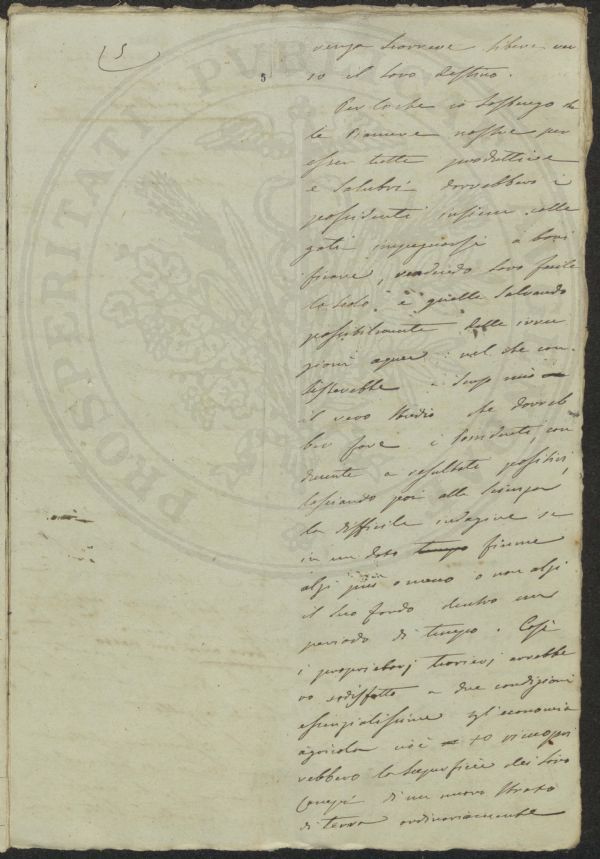 (5
5
PROSPERITATI PUBLICAE
scorrere libere
il loro destino.
Per lo che io sostengo che
le Pianure nostre per
esser tutte produttive
e salubri dovrebbero i
possidenti insieme colle
gati impegnarsi a boni
ficare, rendendo loro facile
lo scolo e quelle salvando
possibilmente dalle innu
acque: nel che con
sisterebbe a senso mio
il vero studio che dovreb
ber fare i Possidenti, con
ducente a resultati positivi,
lasciando poi alla scienza
la difficile indagine se
in un dato tempo fiume
alzi più o meno o non alzi
il suo fondo dentro un
periodo di tempo. Così
i proprietarj terrieri avrebbe
ro sodisfatto a due condizioni
essenzialissime all'economia
agricola cioè
rebbero la superficie dei loro
Campi di un nuovo strato
di terra ordinariamente